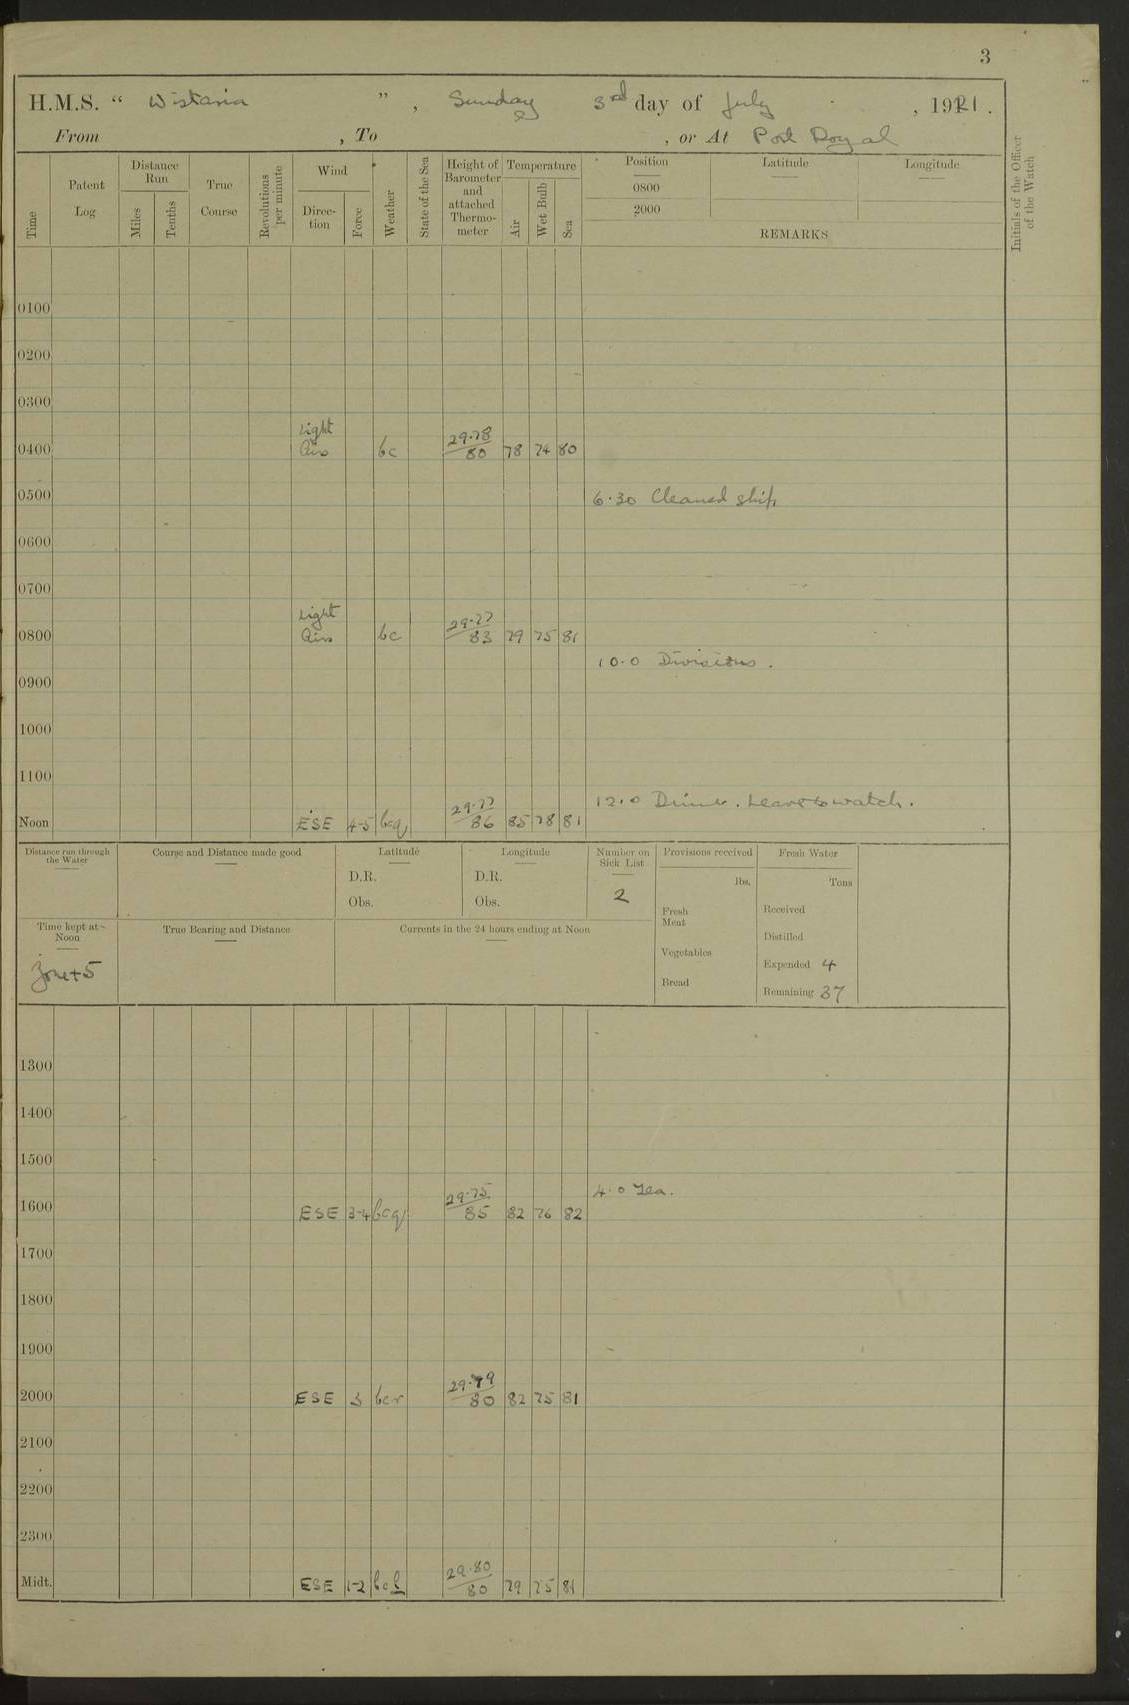 3
H.M.S. “ Wistaria ” , Sunday 3rd day of July , 1921 .
From , To , or At Port Royal
Time
Patent Log
Distance Run
Miles
Tenths
True Course
Revolutions per minute
Wind
Direc-tion
Force
Weather
State of the Sea
Height of Barometer and attached Thermo-meter
Temperature
Air
Wet Bulb
Sea
Position
0800
2000
Latitude
Longitude
REMARKS
Initials of the Officer of the Watch
0100
0200
0300
Light
0400 Airs bc 29.78/80 78 74 80
0500 6.30 Cleaned ship
0600
0700
Light
0800 Airs bc 29.77/83 79 75 81
10.0 Divisions .
0900
1000
1100
12.0 Dinner. Leave to watch .
Noon ESE 4-5 bcq 29.77/86 85 78 81
Distance run through the Water
Course and Distance made good
Latitude
D.R.
Obs.
Longitude
D.R.
Obs.
Number on Sick List
2
Provisions received
lbs.
Fresh Meat
Vegetables
Bread
Fresh Water
Tons
Received
Distilled
Expended 4
Remaining 37
Time kept at Noon
Zone+5
True Bearing and Distance
Currents in the 24 hours ending at Noon
1300
1400
1500
4.0 Tea.
1600 ESE 3-4 bcq 29.75/85 82 76 82
1700
1800
1900
2000 ESE 3 bcr 29.79/80 82 75 81
2100
2200
2300
Midt. ESE 1-2 bcl 29.80/80 79 75 81